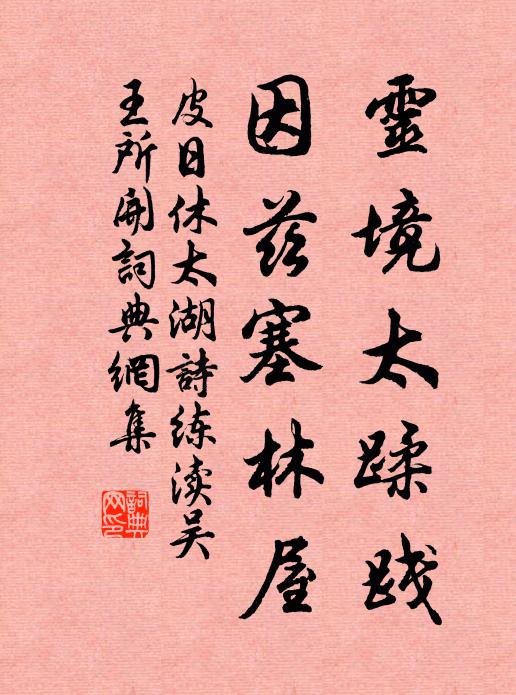 靈境太蹂踐
因茲塞林屋
皮日休太湖詩练渎吴
王所開詞典網集
詞典网印